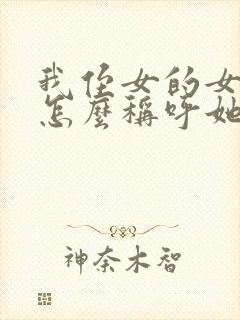 我侄女的女
怎麼稱呼她
神奈木智